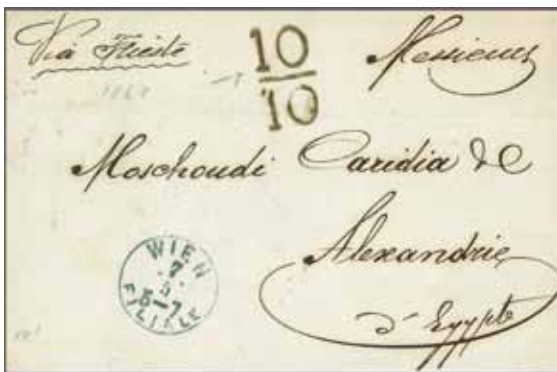 Via Trieste
10
10
Messieurs
1868
Moschoudi Caridia & C
Alexandrie
d'Egypte
WIEN
7
5
5-7
FILIALE